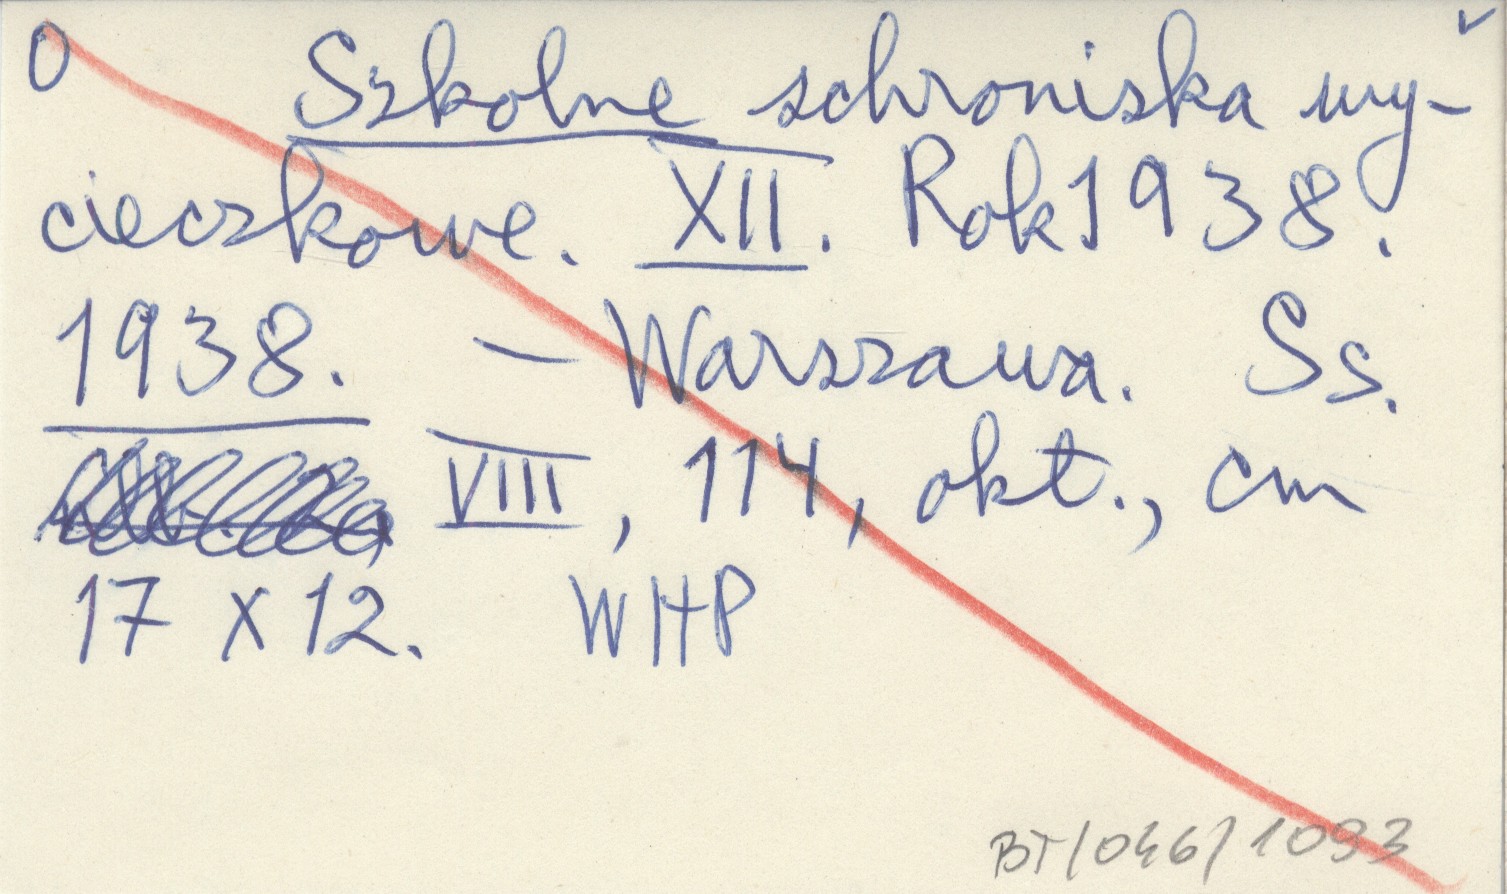 0 Szkolne schroniska wy-
cieczkowe. XII. Rok 1938.
1938. – Warszawa. Ss.
VIII, 114, okt., cm
17 x 12. WHP
BT/046/1093